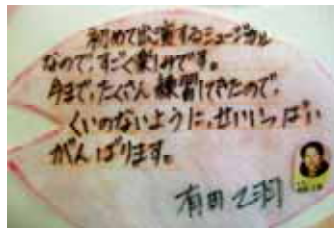 初めて出演するミュージカル
なので、すごく楽しみです。
今まで、たくさん練習してきたので、
くいのないように、せいいっぱい
がんばります。
有田